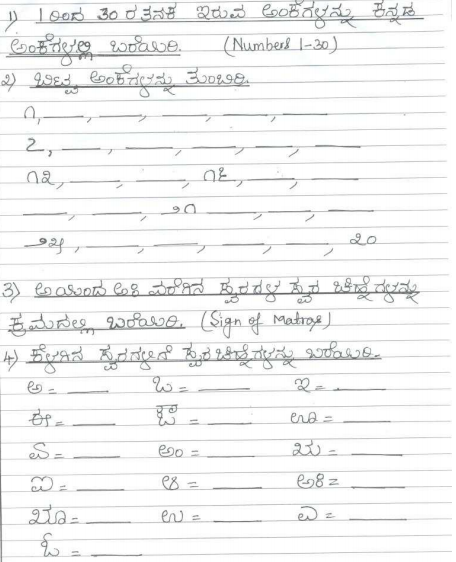 1) 1 ರಿಂದ 30 ರ ತನಕ ಇರುವ ಅಂಕೆಗಳನ್ನು ಕನ್ನಡ
ಅಂಕೆಗಳಲ್ಲಿ ಬರೆಯಿರಿ. (Numbers 1-30)
2) ಬಿಟ್ಟ ಅಂಕೆಗಳನ್ನು ತುಂಬಿರಿ.
೧, ___, ___, ___, ___, ___
೭, ___, ___, ___, ___, ___
೧೩, ___, ___, ೧೬, ___, ___
___, ___, ೨೧ ___, ___, ___
೨೫, ___, ___, ___, ___, ೩೦
3) ಅ ಯಿಂದ ಅಃ ವರೆಗಿನ ಸ್ವರಗಳ ಸ್ವರ ಚಿಹ್ನೆಗಳನ್ನು
ಕ್ರಮದಲ್ಲಿ ಬರೆಯಿರಿ. (Sign of Matras)
4) ಕೆಳಗಿನ ಸ್ವರಗಳಿಗೆ ಸ್ವರ ಚಿಹ್ನೆಗಳನ್ನು ಬರೆಯಿರಿ-
ಅ = ___ ಒ = ___ ಇ = ___
ಈ = ___ ಔ = ___ ಊ = ___
ಏ = ___ ಅಂ = ___ ಋ = ___
ಐ = ___ ಆ = ___ ಅಃ = ___
ೠ = ___ ಉ = ___ ಎ = ___
ಓ = ___